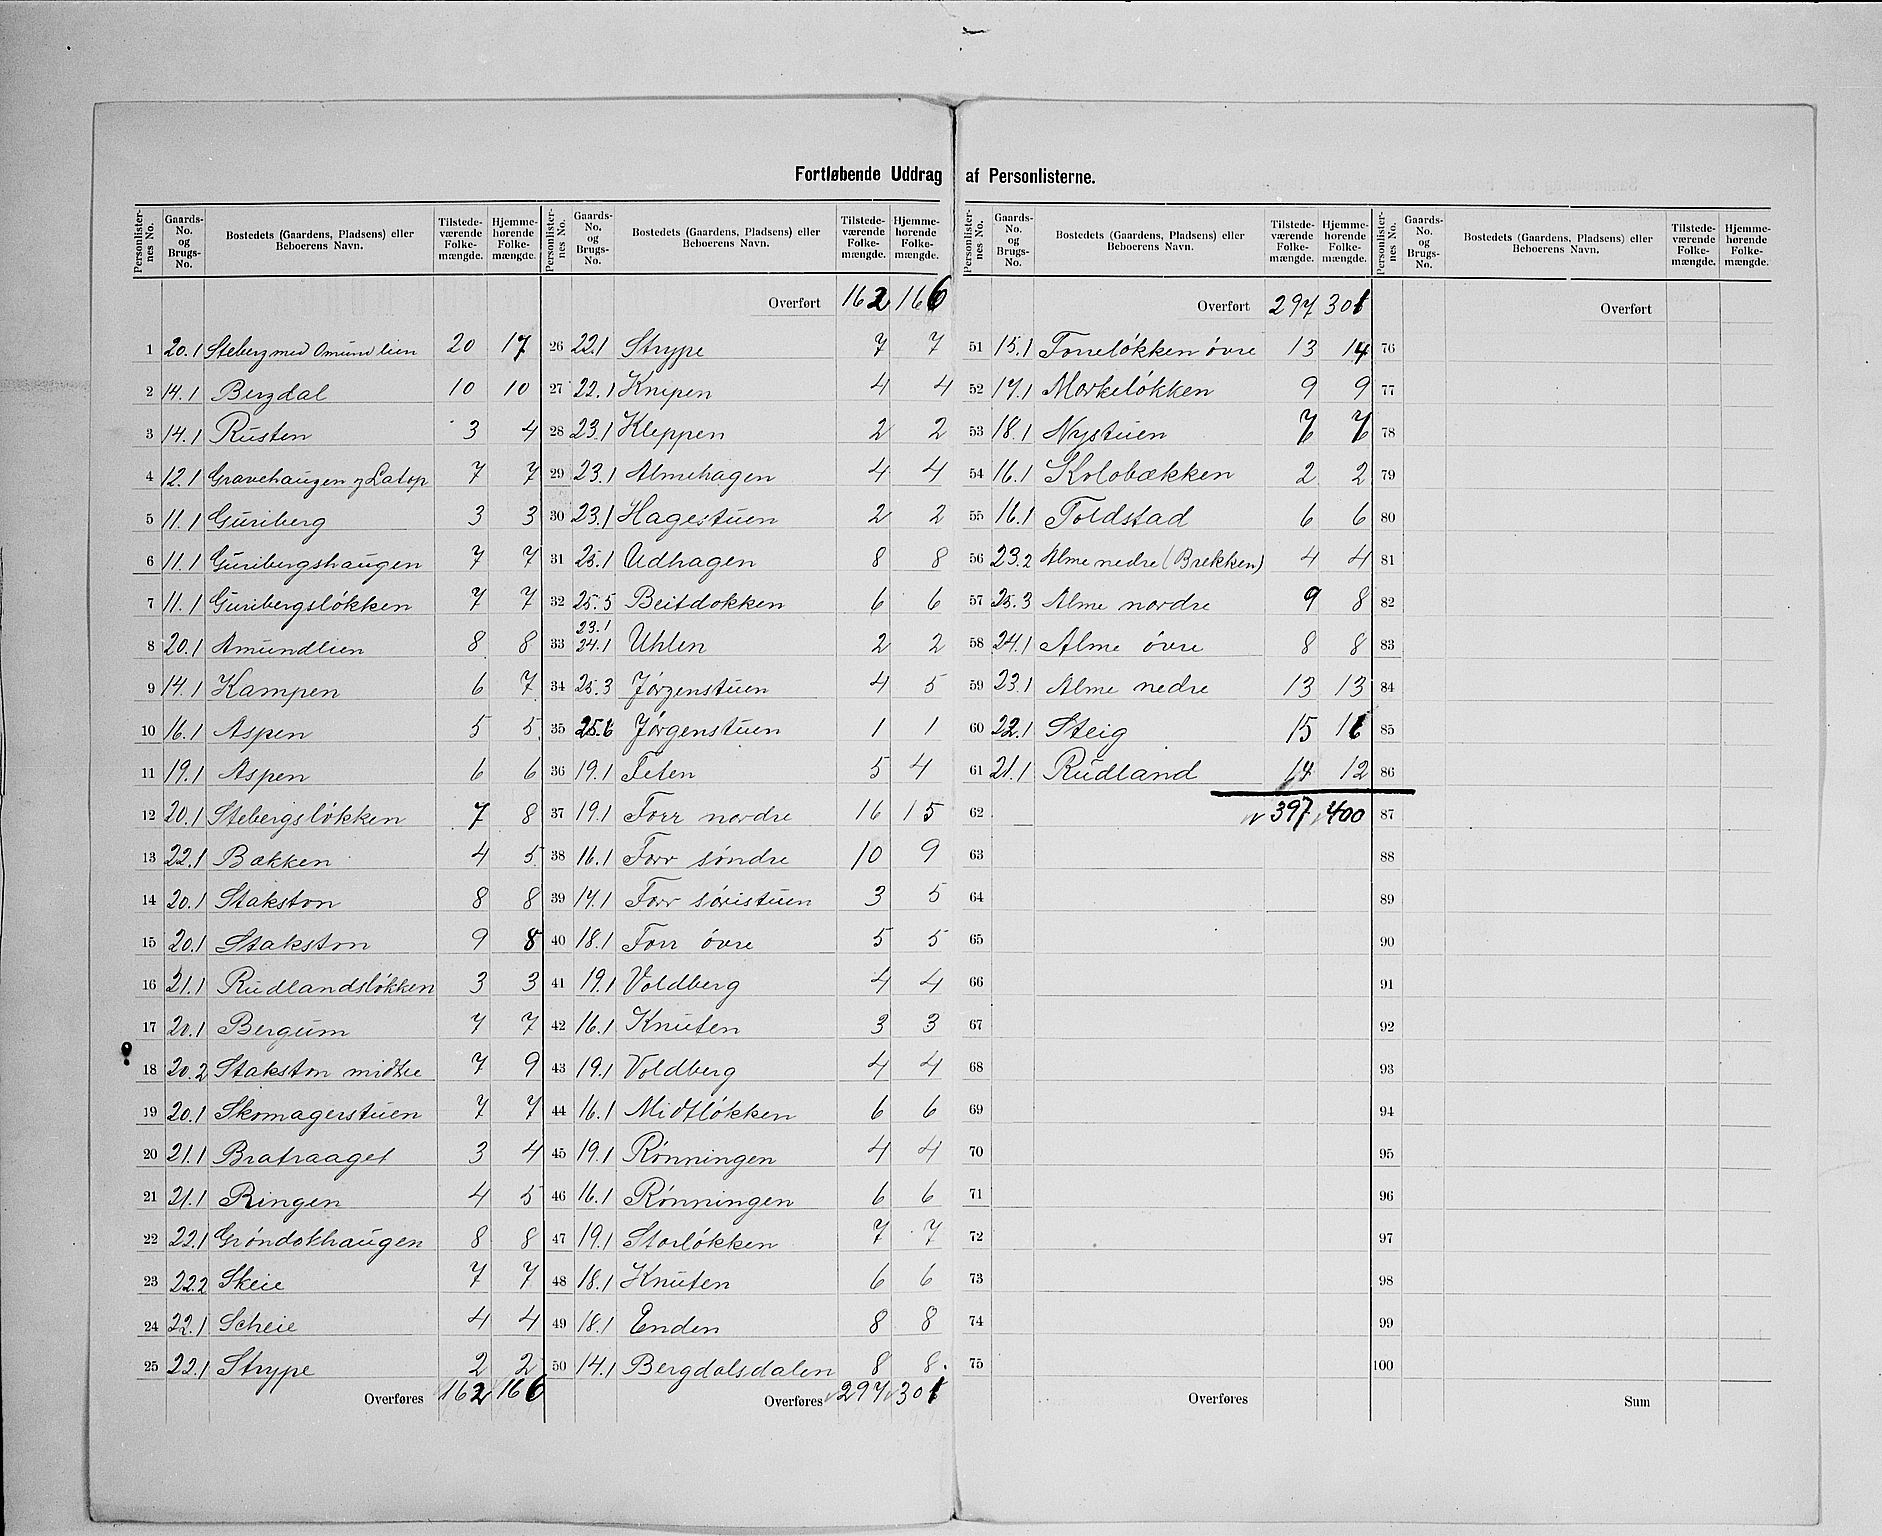 Fortløbende Uddrag af Personlisterne.
Personlisternes No. Gaards-No. og Brugs-No. Bostedets (Gaardens, Pladsens) eller Beboerens Navn. Tilstedeværende Folkemængde. Hjemmehørende Folkemængde.
1 20.1 Steberg med Omundlien 20 17
2 14.1 Bergdal 10 10
3 14.1 Rusten 3 4
4 12.1 Gravehaugen og Latop 7 7
5 11.1 Guriberg 3 3
6 11.1 Guribergshaugen 7 7
7 11.1 Guribergsløkken 7 7
8 20.1 Amundlien 8 8
9 14.1 Kampen 6 7
10 16.1 Aspen 5 5
11 19.1 Aspen 6 6
12 20.1 Stebergsløkken 7 8
13 22.1 Bækken 4 5
14 20.1 Stakston 8 8
15 20.1 Stakston 9 8
16 21.1 Rudlandsløkken 3 3
17 20.1 Bergum 7 7
18 20.2 Stakston midtre 7 9
19 20.1 Skomagerstuen 7 7
20 21.1 Bratraaget 3 4
21 21.1 Ringen 4 5
22 22.1 Grøndokhaugen 8 8
23 22.2 Skeie 7 7
24 22.1 Scheie 4 4
25 22.1 Strype 2 2
Overføres 162 166
Personlisternes No. Gaards-No. og Brugs-No. Bostedets (Gaardens, Pladsens) eller Beboerens Navn. Tilstedeværende Folkemængde. Hjemmehørende Folkemængde.
Overført 162 166
26 22.1 Strype 7 7
27 22.1 Knipen 4 4
28 23.1 Kleppen 2 2
29 23.1 Almehagen 4 4
30 23.1 Hagestuen 2 2
31 25.1 Udhagen 8 8
32 25.5 Beitdokken 6 6
33 23.1 24.1 Uhlen 2 2
34 25.3 Jørgenstuen 4 5
35 25.6 Jørgenstuen 1 1
36 19.1 Teten 5 4
37 19.1 Forr nordre 16 15
38 16.1 Forr søndre 10 9
39 17.1 Forr søristuen 3 5
40 18.1 Forr øvre 5 5
41 19.1 Voldberg 4 4
42 16.1 Knuten 3 3
43 19.1 Voldberg 4 4
44 16.1 Midtløkken 6 6
45 19.1 Rønningen 4 4
46 16.1 Rønningen 6 6
47 19.1 Storløkken 7 7
48 18.1 Knuten 6 6
49 18.1 Enden 8 8
50 14.1 Bergdalsdalen 8 8
Overføres 297 301
Personlisternes No. Gaards-No. og Brugs-No. Bostedets (Gaardens, Pladsens) eller Beboerens Navn. Tilstedeværende Folkemængde. Hjemmehørende Folkemængde.
Overført 297 301
51 15.1 Forreløkken øvre 13 14
52 17.1 Morkeløkken 9 9
53 18.1 Nystuen 7 7
54 16.1 Kolobækken 2 2
55 16.1 Toldstad 6 6
56 23.2 Alme nedre (Brekken) 4 4
57 25.3 Alme nordre 9 8
58 24.1 Alme øvre 8 8
59 23.1 Alme nedre 13 13
60 22.1 Steig 15 16
61 21.1 Rudland 14 12
62 397 400
63
64
65
66
67
68
69
70
71
72
73
74
75
Overføres
Personlisternes No. Gaards-No. og Brugs-No. Bostedets (Gaardens, Pladsens) eller Beboerens Navn. Tilstedeværende Folkemængde. Hjemmehørende Folkemængde.
Overført
76
77
78
79
80
81
82
83
84
85
86
87
88
89
90
91
92
93
94
95
96
97
98
99
100
Sum